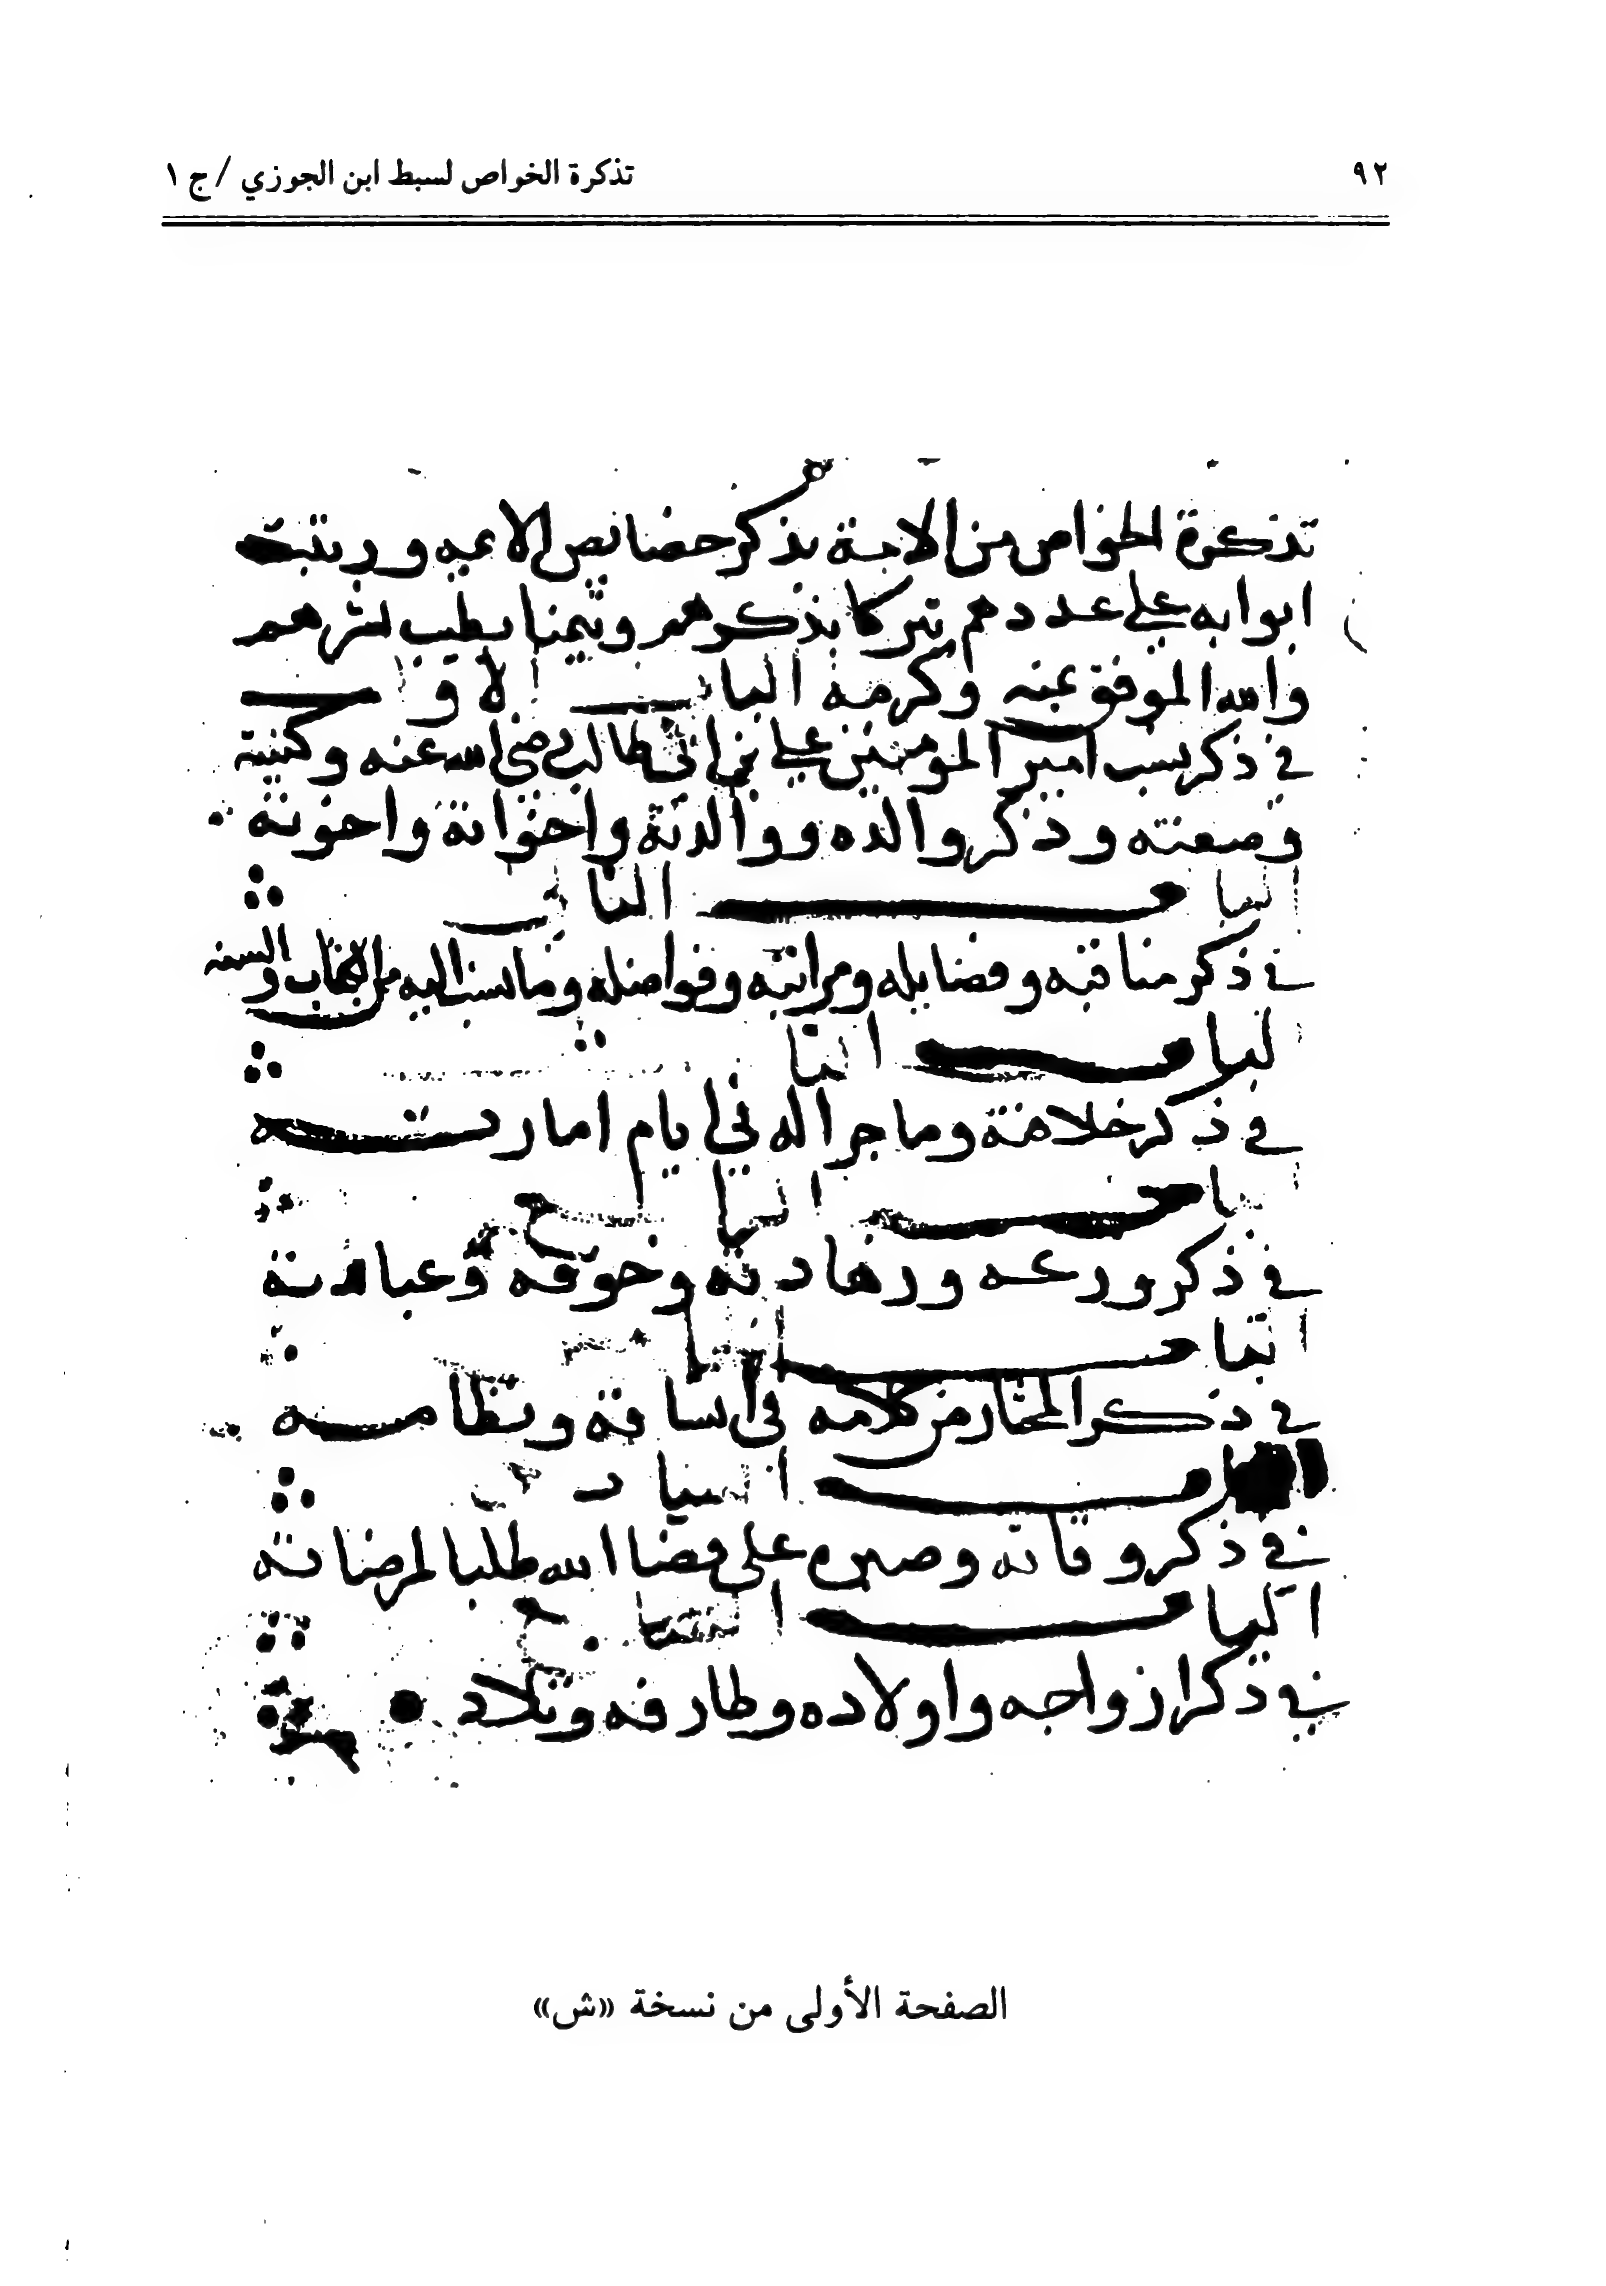 ٩٢
تذكرة الخواص لسبط ابن الجوزي / ج ١
تذكرة الخواص من الامة بذكر خصائص الايمه ورتبت
ابوابه على عددهم تبركا بذكرهم وتيمنا بطيب نشرهم
والله الموفق بمنه وكرمه الباب الاول
في ذكر نسب امير المومنين علي بن ابي طالب رضي الله عنه وكنيته
وصفته وذكر والده ووالدته واخوانه واخوته
الباب الثاني
في ذكر مناقبه وفضايله ومراتبه وفواضله وما نسب اليه من الكتاب والسنه
الباب الثا
في ذكر خلافته وما جرا له في ايام امارته
باب الرابع
في ذكر ورعه وزهادته وخوفه وعبادته
الباب
في ذكر المختار من كلامه في اتساقه ونظامه
الباب الساد س
في ذكر وفاته وصبره على قضا الله طلبا لمرضاته
الباب السابع
في ذكر ازواجه واولاده وطارفه وتلاد
الصفحة الأولى من نسخة «ش»